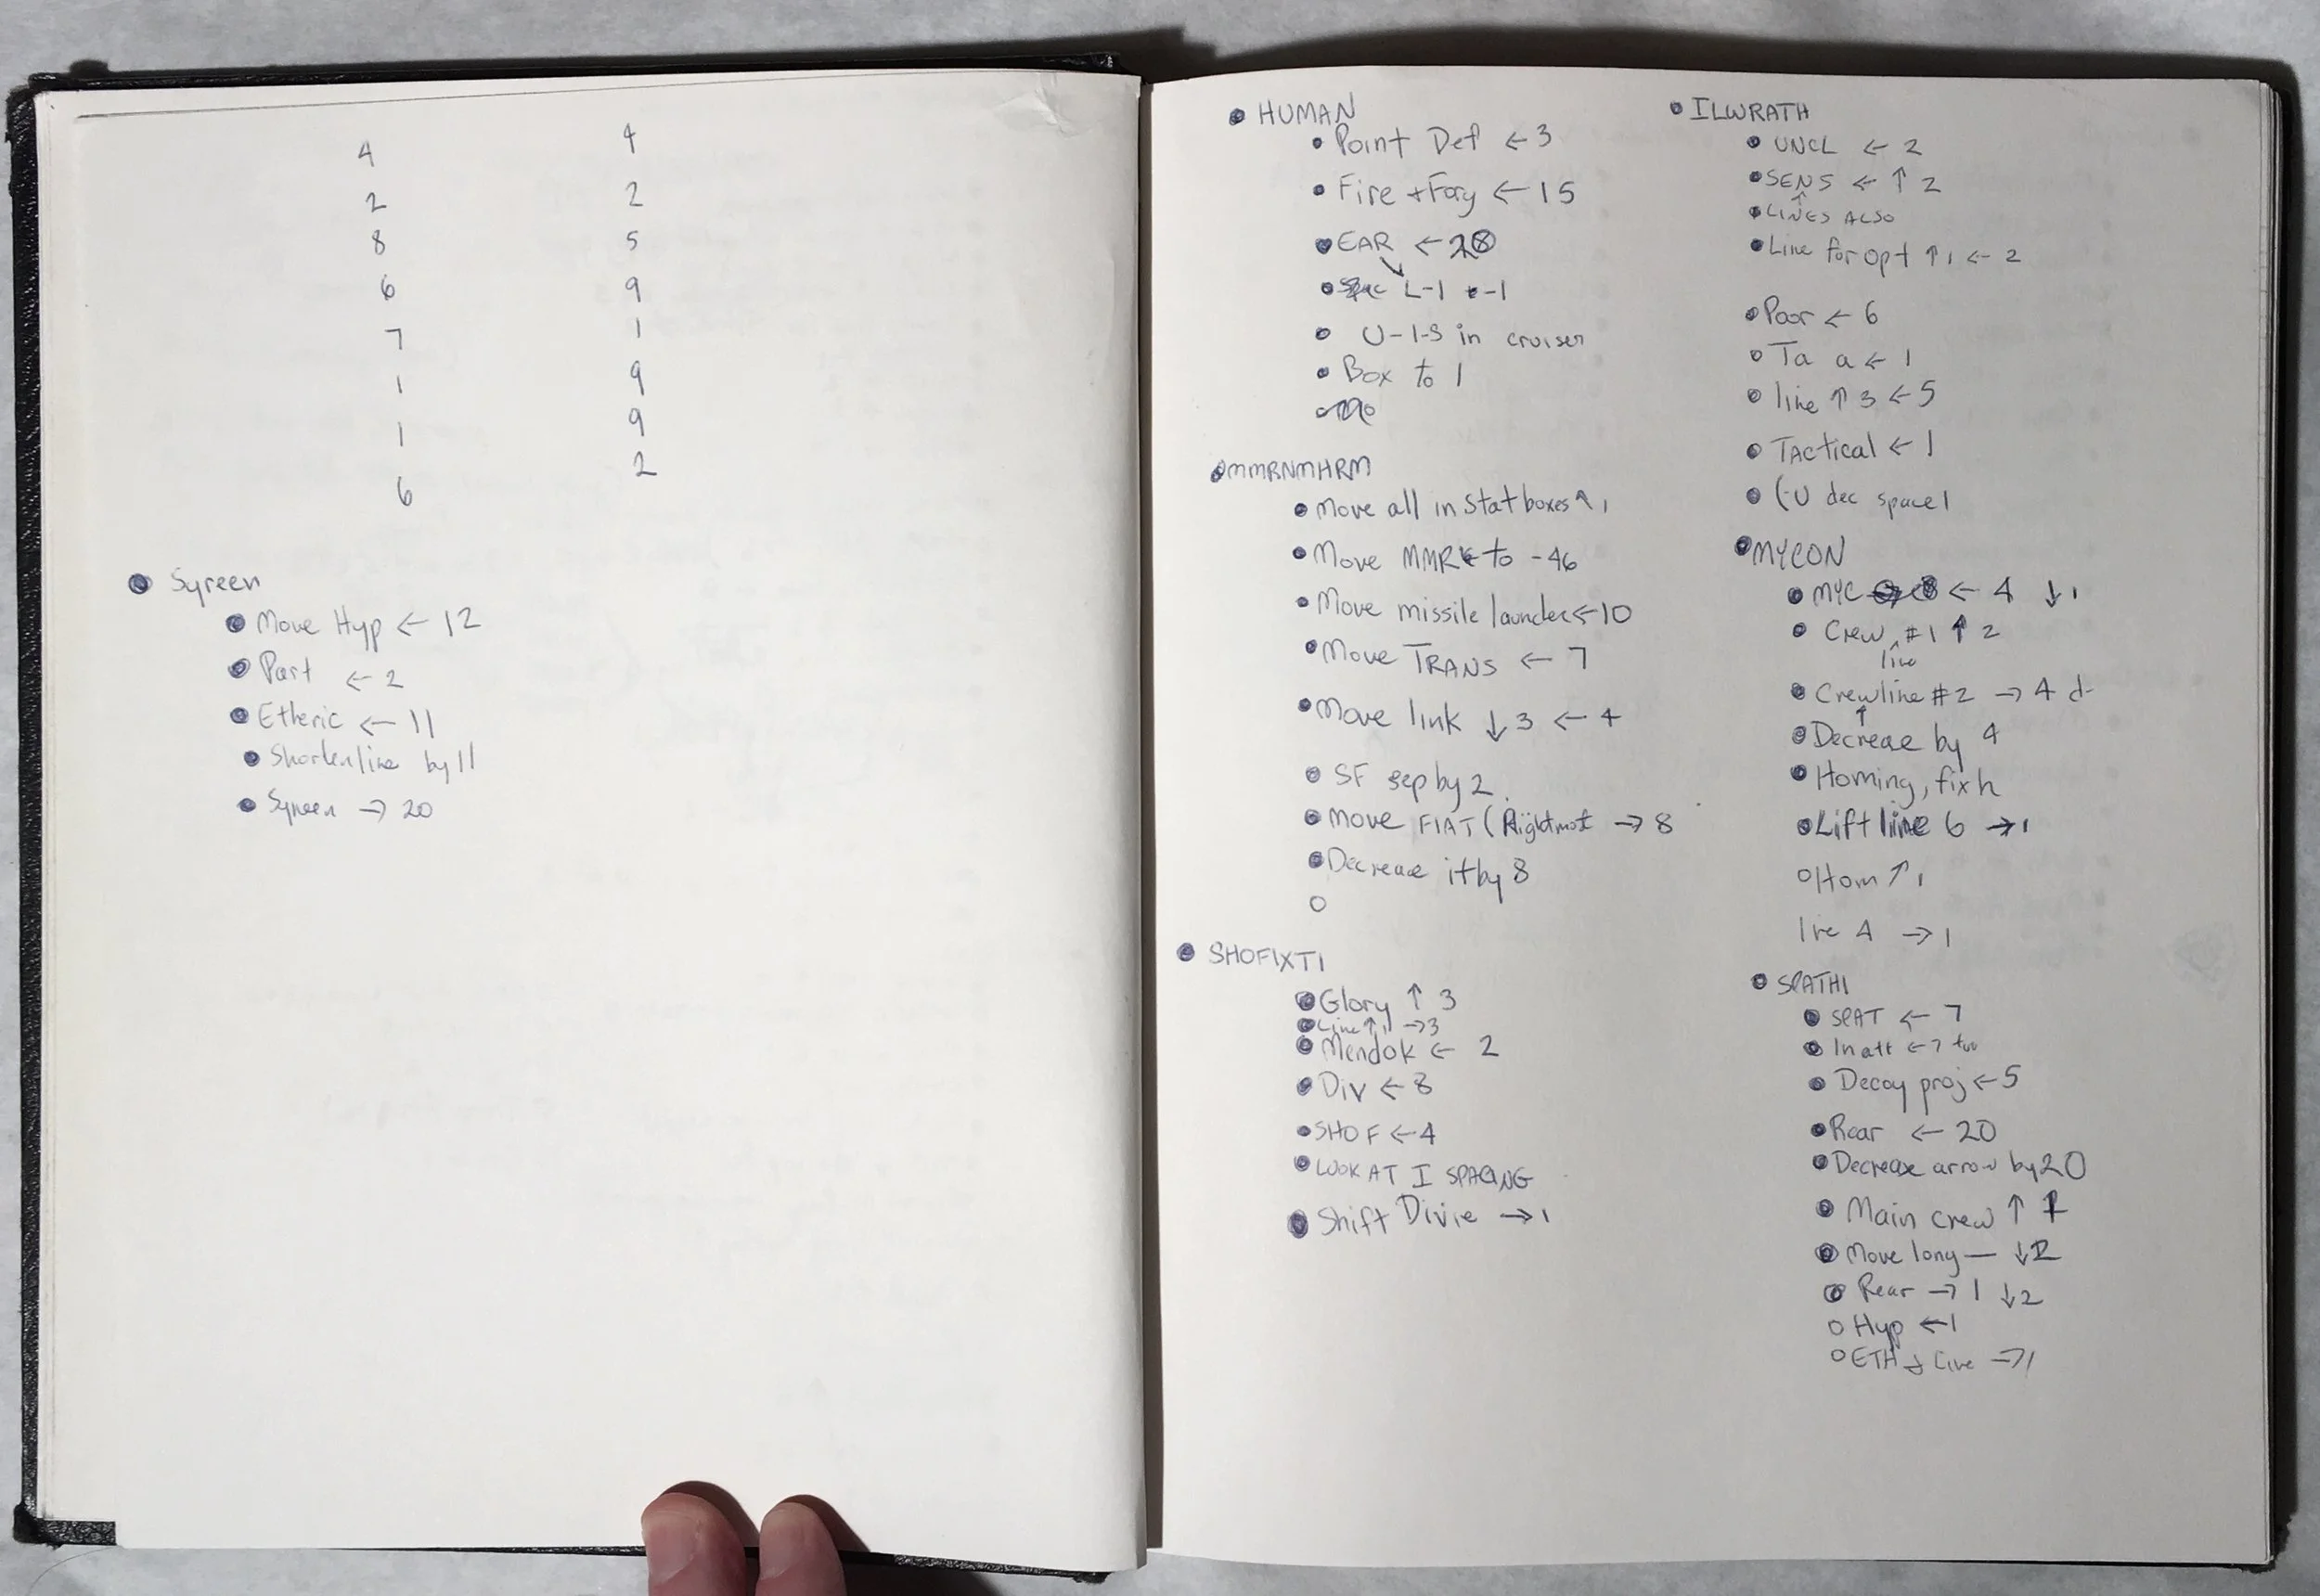 4
2
8
6
7
1
1
6
4
2
5
9
1
9
9
2
Syreen
Move Hyp ← 12
Part ← 2
Etheric ← 11
Shorten line by 11
Syreen → 20
HUMAN
Point Def ← 3
Fire + Forg ← 15
EAR ← 28
L-1 -1
U-1-S in cruiser
Box to 1
MMRNMHRM
Move all in Stat boxes ↑ 1
Move MMR to -46
Move missile launcher ← 10
Move TRANS ← 7
Move link ↓ 3 ← 4
SF sep by 2
Move FIAT (Rightmost → 8
Decrease it by 8
SHOFIXTI
Glory ↑ 3
Line ↑ 1 → 3
Mendok ← 2
Div ← 8
SHOF ← 4
LOOK AT I SPACING
Shift Divie → 1
ILWRATH
UNCL ← 2
SENS ← ↑ 2
LINES ALSO
Line for Opt ↑ 1 ← 2
Poor ← 6
Ta a ← 1
line ↑ 3 ← 5
TACtical ← 1
(-U dec space 1
MYCON
MYC ← 4 ↓ 1
Crew #1 ↑ 2
line
Crewline #2 → 4
Decrease by 4
Homing, fix h
Lift line 6 → 1
Hom ↑ 1
line 4 → 1
SPATHI
SPAT ← 7
In att ← 7
Decoy proj ← 5
Rear ← 20
Decrease arrow by 20
Main crew ↑ 1
Move long — ↓ 2
Rear → 1 ↓ 2
Hyp ← 1
ETH + Line → 1